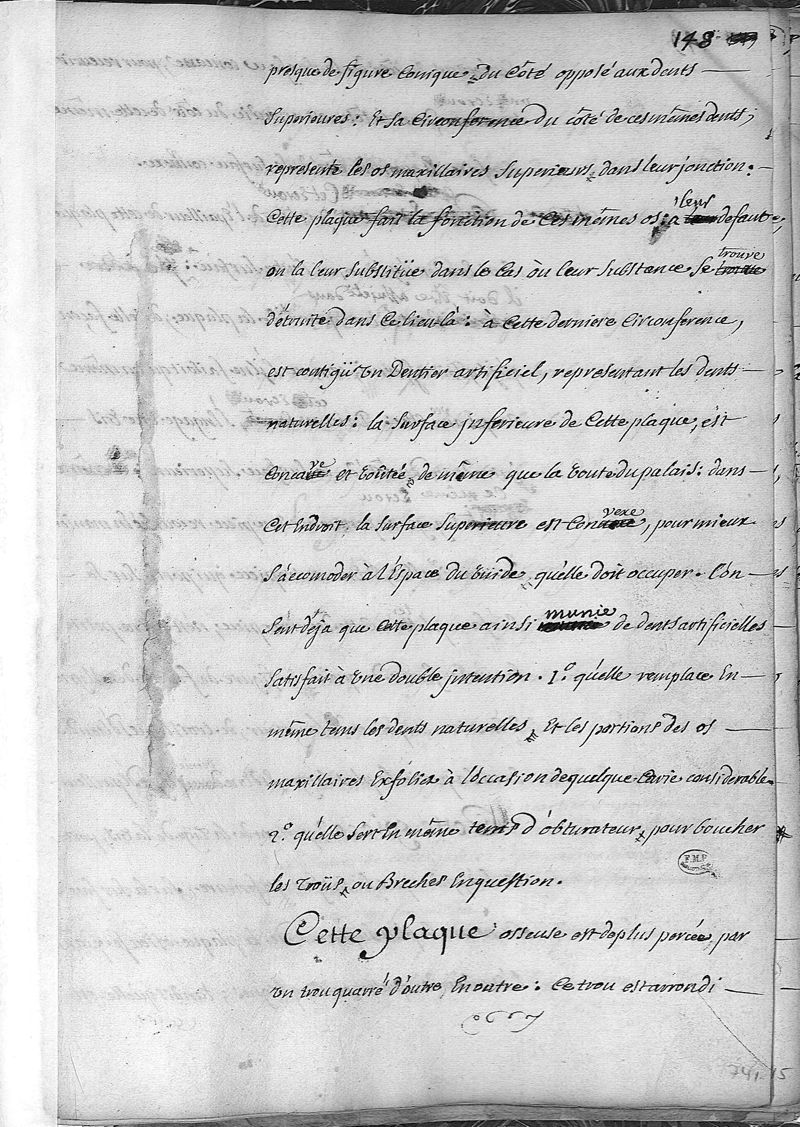 148
presque de figure Conique, du Côté opposé aux dents
Superieures: Et sa Circonference du côté de ces mêmes dents,
represente les os maxillaires Superieurs, dans leur jonction:
Cette plaque fait la fonction de Ces mêmes os: a leur defaut,
on la leur Substitüe dans le Cas où leur Substance se trouve
détruite dans Ce lieu-là: à Cette derniere Circonference,
est contigüe un Dentier artificiel, representant les dents
naturelles: la Surface inferieure de Cette plaque, est
Concave et voûtée, de même que la voute du palais: dans
Cet Endroit. la Surface Superieure est Convexe, pour mieux
S'acomoder à l'Espace du vüide, qu'elle doit occuper. l'on
Sent déja que Cette plaque ainsi munie de dents artificielles
Satisfait à une double intention. 1.º qu'elle remplace En
même tems les dents naturelles, Et les portions des os
maxillaires Exfoliez à l'occasion de quelque Carie considerable.
2.º qu'elle Sert En même tems d'obturateur, pour boucher
les Troüs, ou Breches En question.
F.M.P
Cette plaque osseuse est de plus percée, par
un trou quarré d'outre, En outre: Ce trou est arrondi